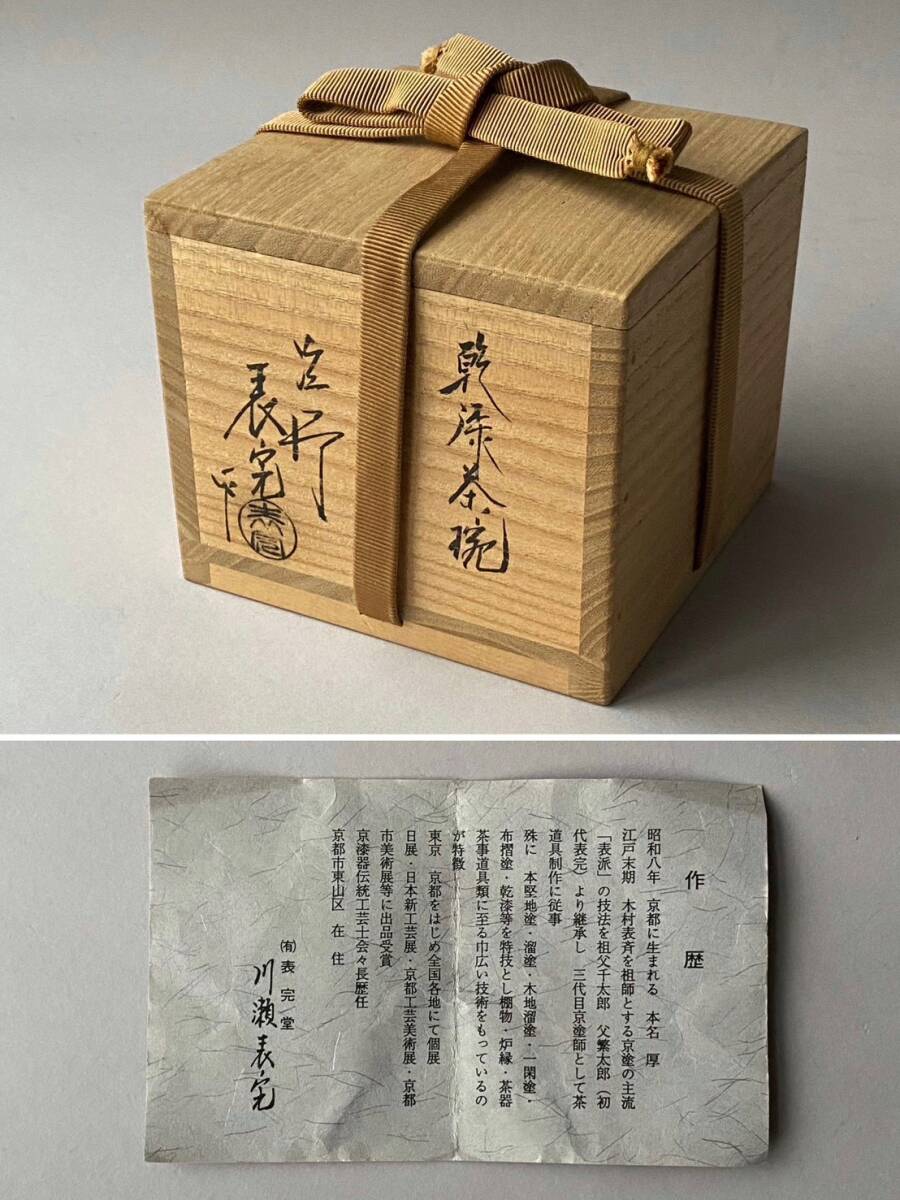 乾漆茶碗
表完
表完
作歴
昭和八年 京都に生まれる 本名 厚
江戸末期 木村表斉を祖師とする京塗の主流
「表派」の技法を祖父千太郎 父繁太郎(初
代表完)より継承し 三代目京塗師として茶
道具制作に従事
殊に 本堅地塗・溜塗・木地溜塗・一閑塗・
布摺塗・乾漆等を特技とし棚物・炉縁・茶器
茶事道具類に至る巾広い技術をもっているの
が特徴
東京 京都をはじめ全国各地にて個展
日展・日本新工芸展・京都工芸美術展・京都
市美術展等に出品受賞
京漆器伝統工芸士会々長歴任
京都市東山区 在 住
㈲表完堂
川瀬表完